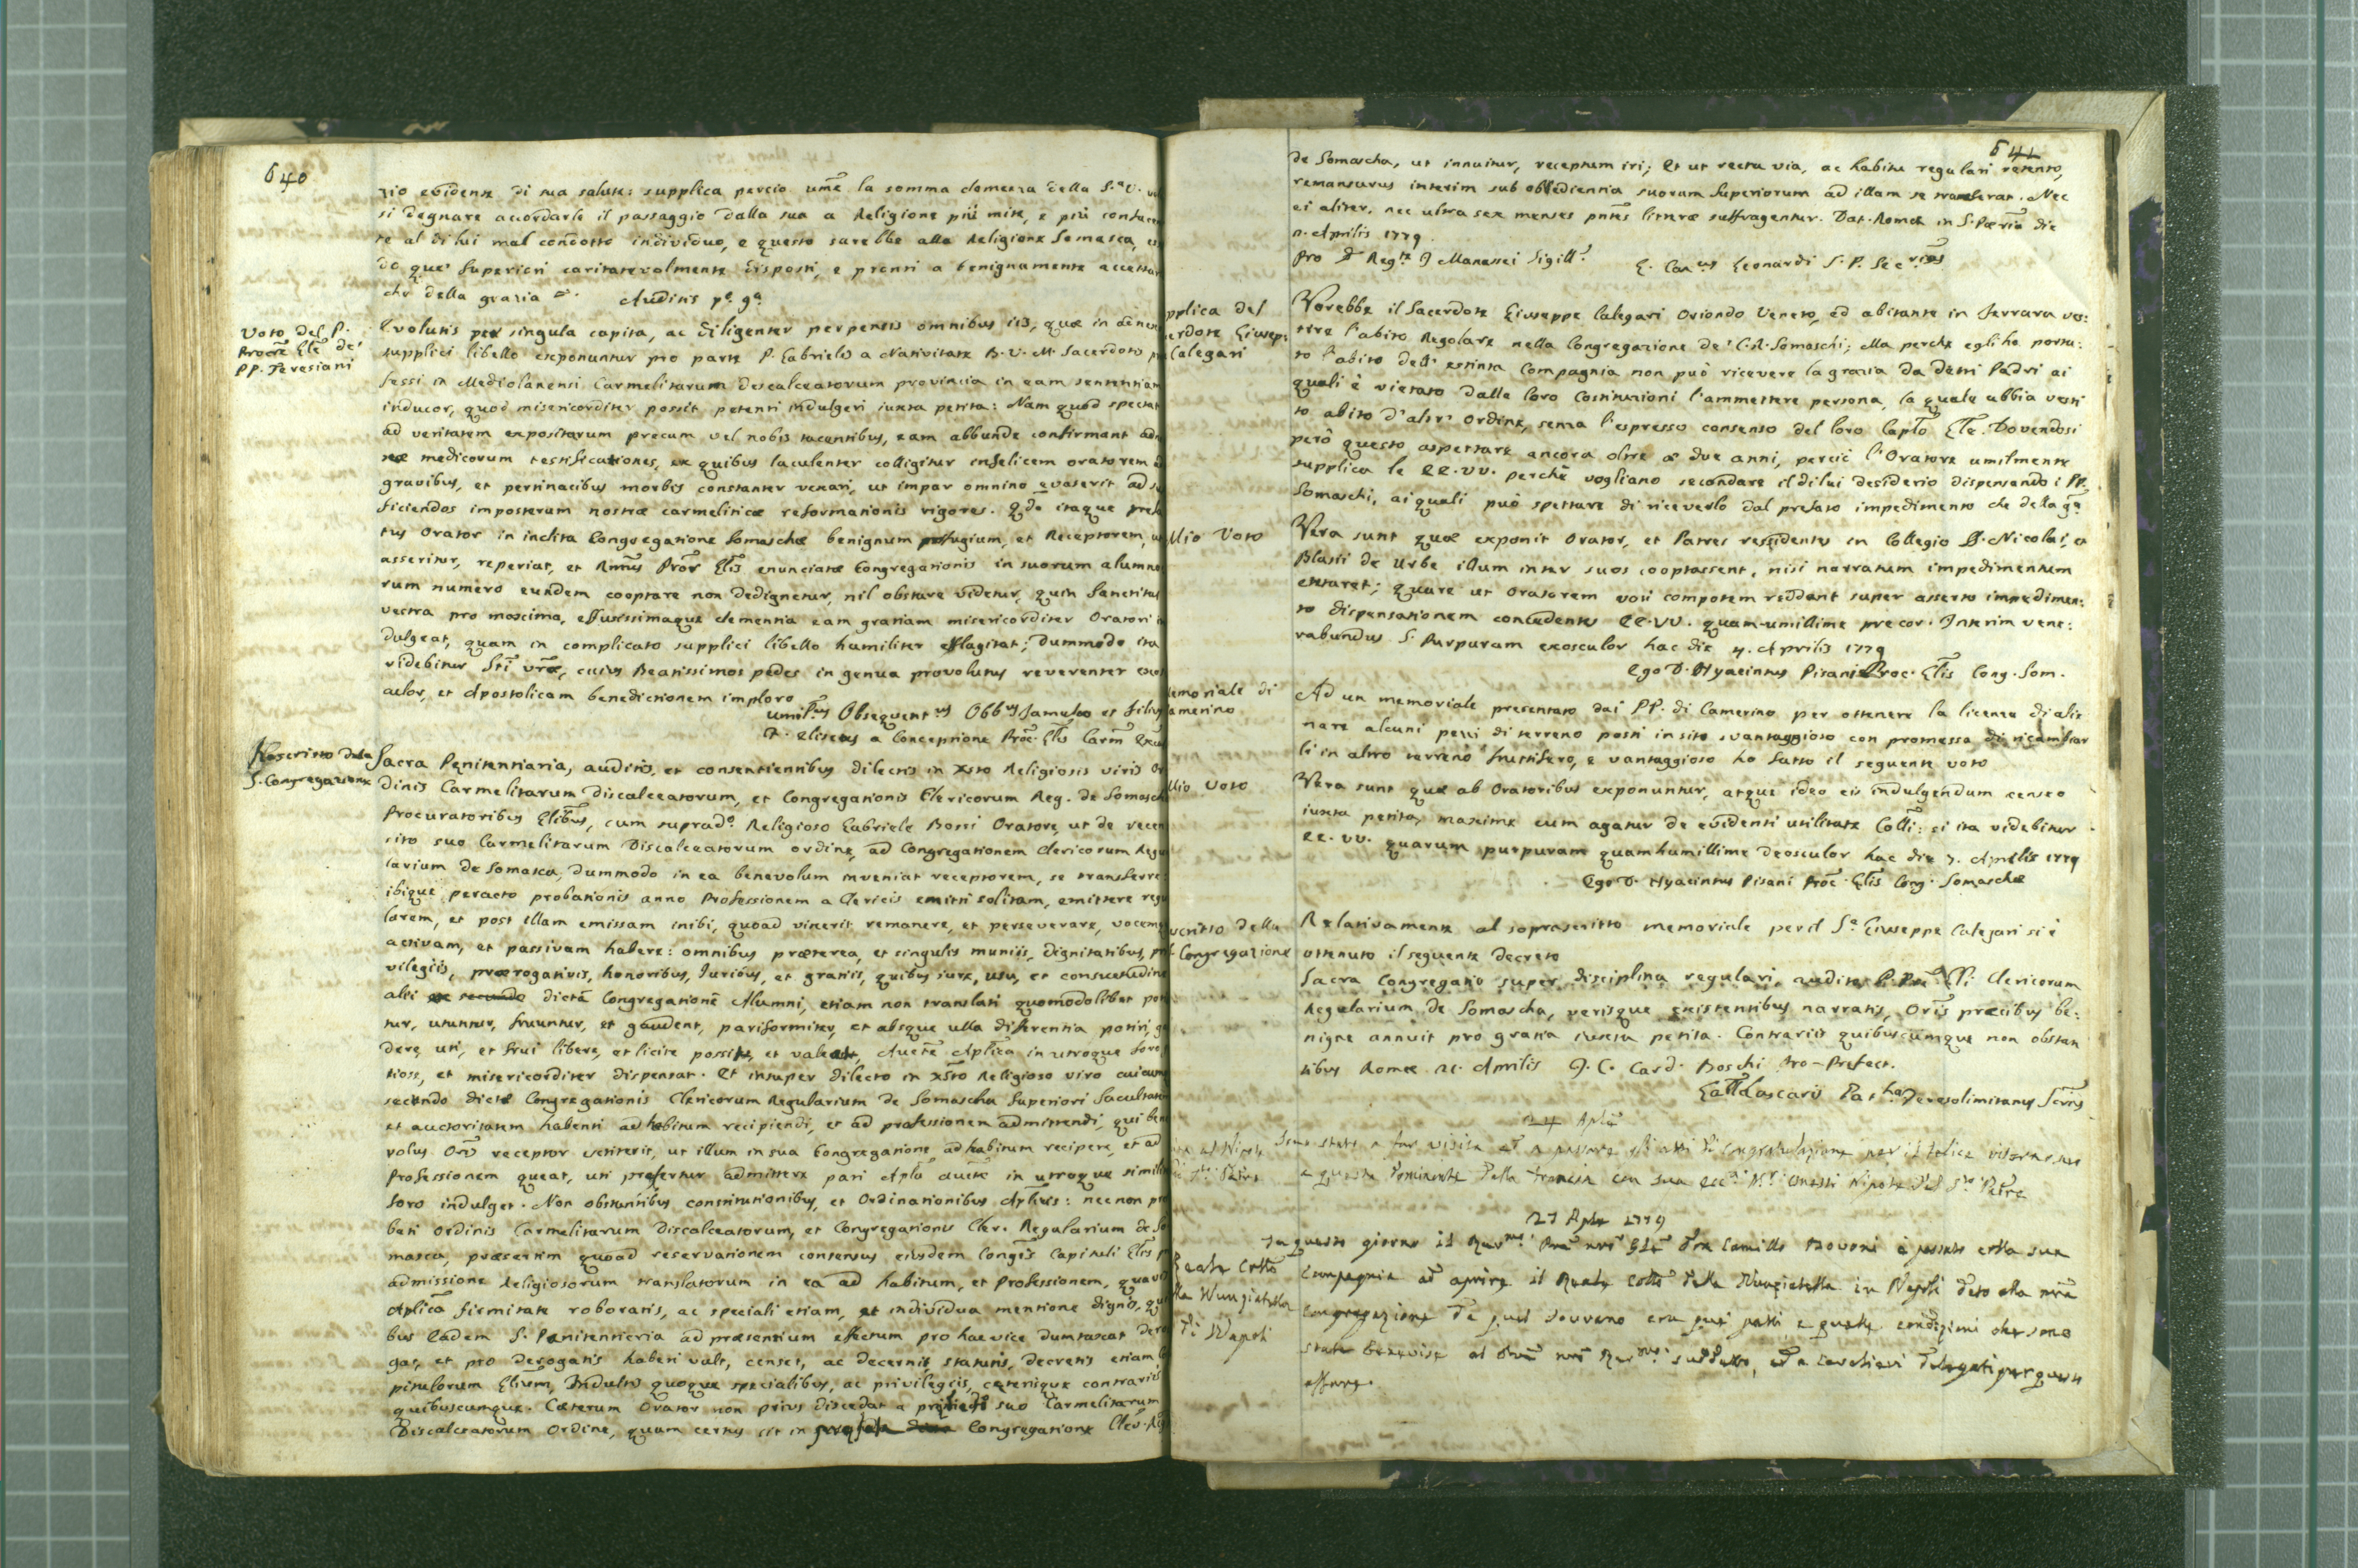 640
zio evidente di sua salute: supplica perciò um.e la somma clemenza della S.a V.
si degnare accordarle il passaggio dalla sua a Religione più mite, e più confacen
te al di lui mal condotto individuo, e questo sarebbe alla Religione Somasca,
do que' Superiori caritatevolmente disposti, e pronti a benignamente accettar
che della grazia Auditis
Voto del P.
Procre Gle de'
PP. Teresiani
Evolutis per singula capita, ac diligenter perpensis omnibus iis, quæ in
supplici libello exponuntur pro parte P. Gabrielis a Nativitate B. V. M. Sacerdotis
fessi in Mediolanensi Carmelitarum descalceatorum provincia in eam sententiam
inducor, quod misericorditer possit petenti indulgeri iuxta petita: Nam quod spectat
ad veritatem expositarum precum vel nobis tacentibus, eam abbunde confirmant
medicorum testificationes, ex quibus luculenter colligitur infelicem oratorem
gravibus, et pertinacibus morbis constanter vexari, ut impar omnino evaserit ad
ficiendos imposterum nostræ carmeliticæ reformationis rigores. Qdo itaque
tus Orator in inclita Congregatione Somaschæ benignum perfugium, et Receptorem,
asseritur, reperiat, et Rmus Pror Glis enunciatæ Congregationis in suorum alumno
rum numero eundem cooptare non dedignetur, nil obstare videtur, quin Sanctitas
vestra pro maxima, effusissimaque clementia eam gratiam misericorditer Oratori
dulgeat, quam in complicato supplici libello humiliter efflagitat; dummodo ita
videbitur Sti vræ, cuius Beatissimos pedes in genua provolutus reverenter
culor, et Apostolicam benedictionem imploro
umil.us Obsequent.us Obb.us famulus et filius
F. Eliseus a Conceptione Proc. Glis Carm.
Rescritto dela
S. Congregazione
Sacra Penitentiaria, auditis, et consentientibus dilectis in Xsto Religiosis viris Or
dinis Carmelitarum Discalceatorum, et Congregationis Clericorum Reg. de Somascha
Procuratoribus Glibus, cum suprado. Religioso Gabriele Bossi Oratore, ut de
sito suo Carmelitarum Discalceatorum ordine, ad Congregationem Clericorum Regu
larium de Somasca, dummodo in ea benevolum inveniat receptorem, se transferre
ibique peracto probationis anno Professionem a Clericis emitti solitam, emittere regu
larem, et post illam emissam inibi, quoad vixerit remanere, et perseverare, vocemq
activam, et passivam habere: omnibus præterea, et singulis muniis, dignitatibus,
vilegiis, prærogativis, honoribus, Iuribus, et gratiis, quibus iure, usu, et consuetudine
alii dictæ Congregationis Alumni, etiam non translati quomodolibet
tur, utuntur, fruuntur, et gaudent, pariformiter, et absque ulla differentia potiri,
dere, uti, et frui libere, et licite possit, et valeat, Aucte Aplica in utroque foro
tiose, et misericorditer dispensat. Et insuper dilecto in Xsto Religioso viro cuicum
secundo dictæ Congregationis Clericorum Regularium de Somascha Superiori facultatem
et auctoritatem habenti ad habitum recipiendi, et ad professionem admittendi, qui bene
volus Oris receptor extiterit, ut illum in sua Congregatione, ad habitum recipere, et ad
Professionem queat, uti prefertur admittere pari Apla aucte in utroque simili
foro indulget. Non obstantibus constitutionibus, et Ordinationibus Aplicis: necnon
bati Ordinis Carmelitarum Discalceatorum, et Congregationis Cler. Regularium de So
masca, præsertim quoad reservationem consensus eiusdem Congis Capituli Glis
admissione Religiosorum translatorum in ea ad habitum, et Professionem,
Aplica firmitate roboratis, ac speciali etiam, et individua mentione dignis,
bus Eadem S. Penitentieria ad præsentium effectum pro hac vice dumtaxat
gat, et pro derogatis haberi vult, censet, ac decernit, statutis, decretis etiam
pitulorum Glium, Indultis quoque specialibus, ac privilegiis, ceterisque contrariis
quibuscumque. Cæterum Orator non prius discedat a suo Carmelitarum
Discalceatorum Ordine, quam certus sit in Congregatione Cler. Reg
641
de Somascha, ut innuitur, receptum iri; Et ut recta via, ac habitu regulari retento,
remansurus interim sub obbedientia suorum Superiorum ad illam se transferat. Nec
ei aliter, nec ultra sex menses pntes litteræ suffragentur. Dat. Romæ in S. Pœria die
Aprilis 1779.
Pro Reg.te I Manassei Sigill.
Leonardi S. P. Sec.rius
pplica del
erdote Giusep:
Calegari
Vorebbe il Sacerdote Giuseppe Calegari Oriondo Veneto, ed abitante in Ferrara ves:
tire l'abito Regolare nella Congregazione de' C. R. Somaschi; Ma perche egli ha porta:
to l'abito dell' estinta Compagnia non può ricevere la grazia da detti Padri ai
quali è vietato dalle loro Costituzioni l'ammettere persona, la quale abbia vesti
to abito d'altr' Ordine, senza l'espresso consenso del loro Caplo Gle. Dovendosi
però questo aspettare ancora oltre a due anni, perciò l'Oratore umilmente
supplica le EE. VV. perchè vogliano secondare il di lui desiderio dispensando i PP.
Somaschi, ai quali può spettare di riceverlo dal prefato impedimento che della ga
Mio Voto
Vera sunt quæ exponit Orator, et Patres residentes in Collegio S. Nicolai, et
Blasii de Urbe illum inter suos cooptassent, nisi narratum impedimentum
extaret; quare ut Oratorem voti compotem reddant super asserto impedimen:
to dispensationem concedentes EE. VV. quam-umillime precor. Interim vene:
rabundus S. Purpuram exosculor hac die 7. Aprilis 1779
Ego D. Hyacintus Pisani Proc. Glis Cong. Som.
emoriale di
amerino
Ad un memoriale presentato dai PP. di Camerino per ottenere la licenza di alie
nare alcuni pezzi di terreno posti in sito svantaggioso con promessa di ricambiar
li in altro terreno fruttifero, e vantaggioso ho fatto il seguente voto
Mio voto
Vera sunt quæ ab Oratoribus exponuntur, atque ideo eis indulgendum censeo
iuxta petita, maxime cum agatur de evidenti utilitate Colli: si ita videbitur
EE. VV. quarum purpuram quamhumillime deosculor hac die 7. Aprilis 1779
Ego D. Hyacintus Pisani Proc. Glis Cong. Somaschæ
scritto della
Congregazione
Relativamente al soprascritto memoriale per il Sr. Giuseppe Calegari si è
ottenuto il seguente decreto
Sacra Congregatio super disciplina regulari, audito P. Pre Gli Clericorum
Regularium de Somascha, verisque existentibus narratis, Oris præcibus be:
nigne annuit pro gratia iuxta petita. Contrariis quibuscumque non obstan
tibus Romæ Aprilis I. C. Card. Boschi Pro-Prefect.
Lascaris Pat.ha Ierosolimitanus Scrius
24 Aple
al Nipote
Padre
Sono stato a far visita ed a passare gli atti di congratulazione per il felice
a questa Dominante dalla Francia con sua Nipote del Sto Padre
27 Aple 1779
Reale Collo
lla Nunziatella
di Napoli
In questo giorno il nro Gle Dn Camillo Bovoni è passato colla sua
Compagnia ad aprire il Reale Collo della Nunziatella in Napoli dato alla nra
Congregazione da quel Sovrano con quei patti e quelle condizioni che sono
state al nro suddetto, ed a Cavalieri delegati per questo
affare.